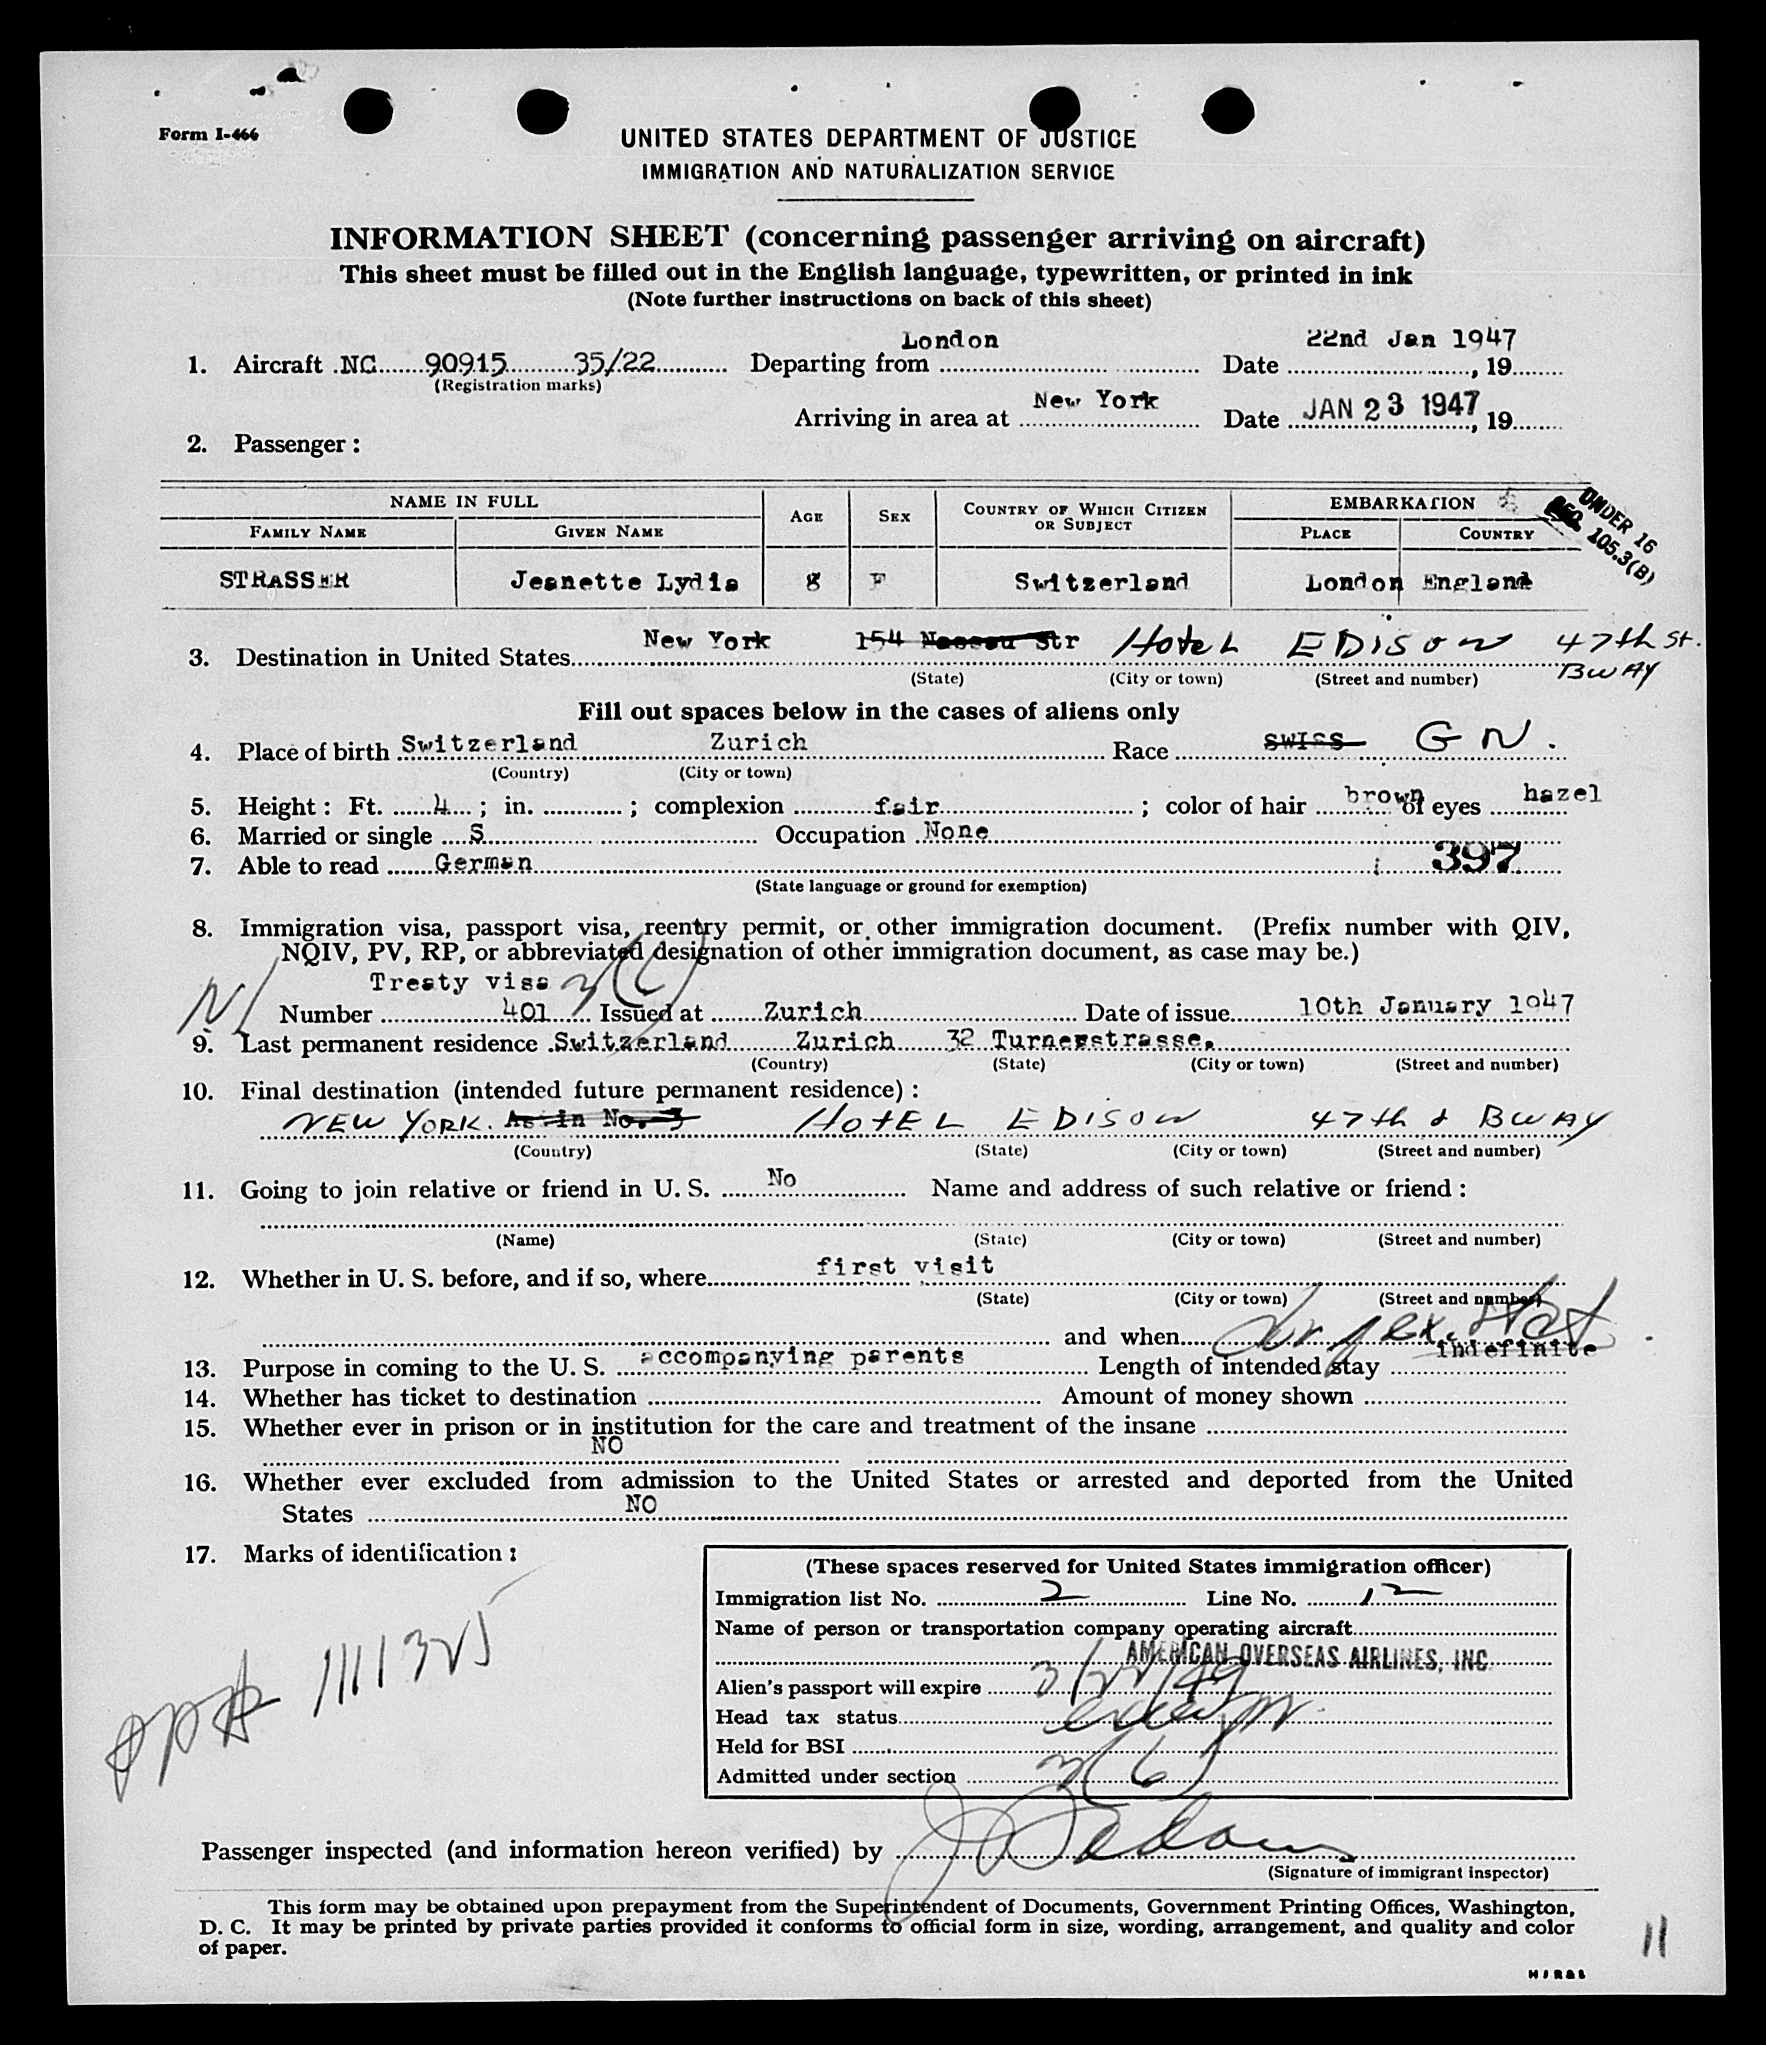 Form I-466
UNITED STATES DEPARTMENT OF JUSTICE
IMMIGRATION AND NATURALIZATION SERVICE
INFORMATION SHEET (concerning passenger arriving on aircraft)
This sheet must be filled out in the English language, typewritten, or printed in ink
(Note further instructions on back of this sheet)
1. Aircraft NC 90915 35/22 Departing from London Date 22nd Jan 1947, 19
(Registration marks)
Arriving in area at New York Date JAN 23 1947, 19
2. Passenger:
NAME IN FULL AGE SEX COUNTRY OF WHICH CITIZEN OR SUBJECT EMBARKATION
FAMILY NAME GIVEN NAME PLACE COUNTRY
UNDER 16
REG. 105.3(B)
STRASSER Jeanette Lydia 8 F Switzerland London England
3. Destination in United States New York 154 Nassau Str HOTEL EDISON 47th St.
BWAY
(State) (City or town) (Street and number)
Fill out spaces below in the cases of aliens only
4. Place of birth Switzerland Zurich Race SWISS GN.
(Country) (City or town)
5. Height: Ft. 4; in. ; complexion fair; color of hair brown of eyes hazel
6. Married or single S Occupation None
7. Able to read German 397
(State language or ground for exemption)
8. Immigration visa, passport visa, reentry permit, or other immigration document. (Prefix number with QIV,
NQIV, PV, RP, or abbreviated designation of other immigration document, as case may be.)
Treaty visa 3(6)
Number 401 Issued at Zurich Date of issue 10th January 1947
9. Last permanent residence Switzerland Zurich 32 Turnerstrasse.
(Country) (State) (City or town) (Street and number)
10. Final destination (intended future permanent residence):
NEW YORK. As in No. 3 HOTEL EDISON 47th & BWAY
(Country) (State) (City or town) (Street and number)
11. Going to join relative or friend in U. S. No Name and address of such relative or friend:
(Name) (State) (City or town) (Street and number)
12. Whether in U. S. before, and if so, where first visit
(State) (City or town) (Street and number)
and when
13. Purpose in coming to the U. S. accompanying parents Length of intended stay indefinite
14. Whether has ticket to destination Amount of money shown
15. Whether ever in prison or in institution for the care and treatment of the insane
NO
16. Whether ever excluded from admission to the United States or arrested and deported from the United
States NO
17. Marks of identification:
(These spaces reserved for United States immigration officer)
Immigration list No. 2 Line No. 12
Name of person or transportation company operating aircraft
AMERICAN OVERSEAS AIRLINES, INC.
Alien's passport will expire 3/22/49
Head tax status
Held for BSI
Admitted under section 3(6)
PP# 111325
Passenger inspected (and information hereon verified) by
(Signature of immigrant inspector)
This form may be obtained upon prepayment from the Superintendent of Documents, Government Printing Offices, Washington,
D. C. It may be printed by private parties provided it conforms to official form in size, wording, arrangement, and quality and color
of paper.
11